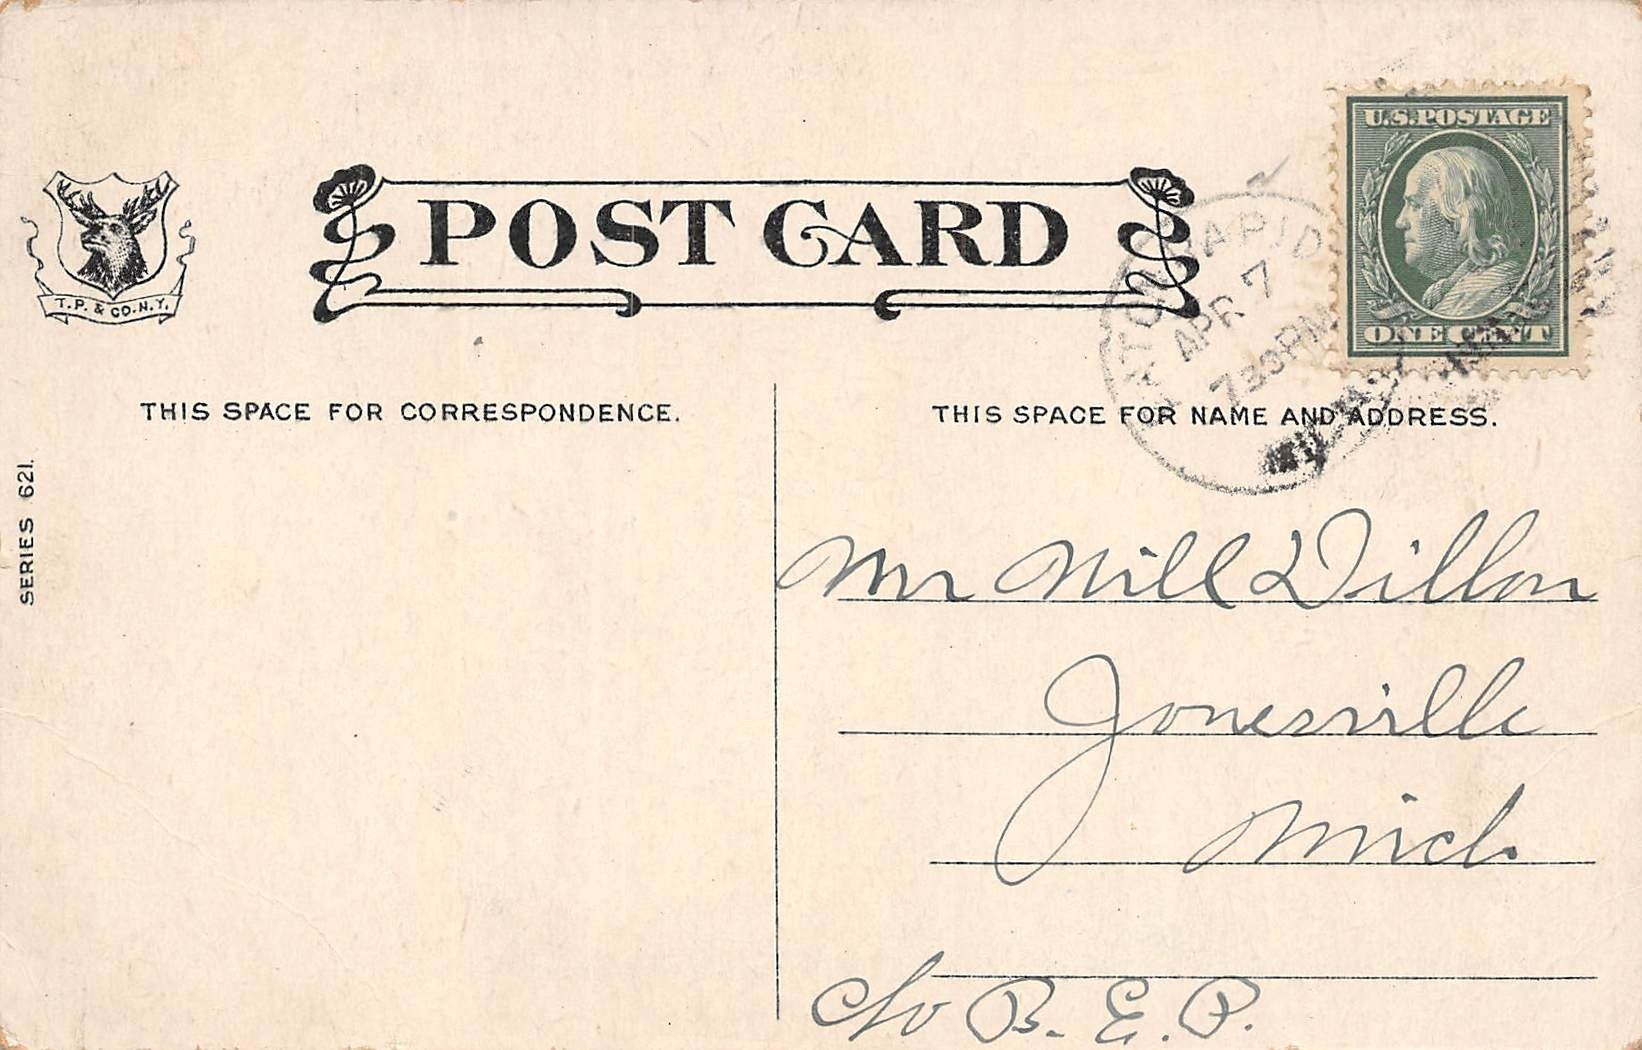 U.S. POSTAGE
POST CARD
RAPID
APR 7
730 PM
T. P. & CO. N. Y.
ONE CENT
THIS SPACE FOR CORRESPONDENCE.
THIS SPACE FOR NAME AND ADDRESS.
SERIES 621.
Mr Will Dillon
Jonesville
Mich.
c/o B. E. P.